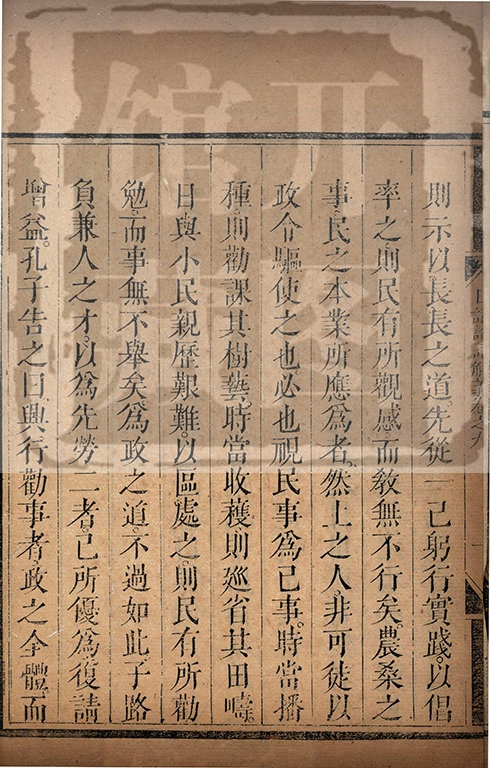 則示以長長之道。先從一己躬行實踐。以倡
率之。則民有所觀感而敎無不行矣。農桑之
事。民之本業所應爲者。然上之人。非可徒以
政令驅使之也。必也視民事爲己事。時當播
種。則勸課其樹藝。時當收穫。則巡省其田疇。
日與小民親歷艱難。以區處之。則民有所勸
勉。而事無不舉矣。爲政之道。不過如此。子路
負兼人之才。以爲先勞二者。己所優爲。復請
增益。孔子告之曰。興行勸事者。政之全體。而